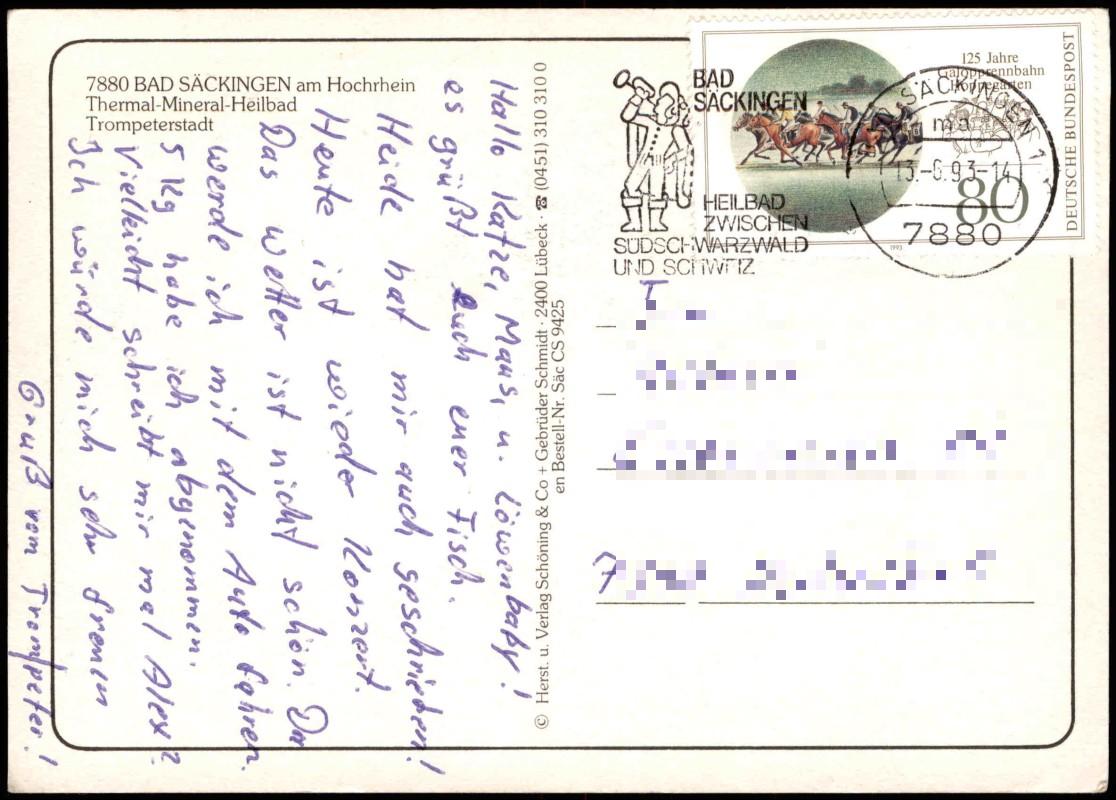 7880 BAD SÄCKINGEN am Hochrhein
Thermal-Mineral-Heilbad
Trompeterstadt
Hallo Katze, Maus, u. Löwenbaby!
es grüßt Euch euer Fisch.
Heide hat mir auch geschrieben!
Heute ist wieder Konzert.
Das Wetter ist nicht schön. Da
werde ich mit dem Auto fahren.
5 kg habe ich abgenommen.
Vielleicht schreibt mir mal Alex?
Ich würde mich sehr freuen
Gruß vom Trompeter!
© Herst. u. Verlag Schöning & Co + Gebrüder Schmidt · 2400 Lübeck · ☎ (0451) 310 310 0
en Bestell-Nr. Säc CS 9425
BAD
SÄCKINGEN
HEILBAD
ZWISCHEN
SÜDSCHWARZWALD
UND SCHWEIZ
125 Jahre
Galopprennbahn
Hoppegarten
80
DEUTSCHE BUNDESPOST
1993
SÄCKINGEN 1
ma
13.-6.93-14
7880